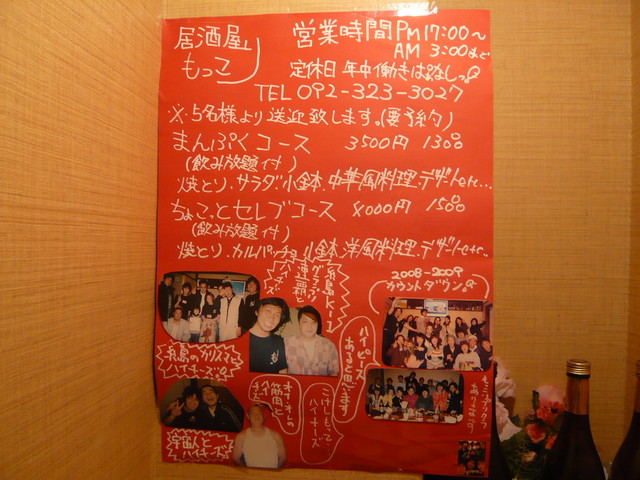 居酒屋
もっこり
営業時間 PM 17:00〜
AM 3:00まで
定休日 年中働きぱなしっ
TEL 092-323-3027
※5名様より送迎致します。(要予約)
まんぷくコース 3500円
(飲み放題付)
焼とり.サラダ.小鉢.中華風料理.デザートetc...
ちょこっとセレブコース 4000円
(飲み放題付)
焼とり.カルパッチョ.小鉢.洋風料理.デザートetc..
2008-2009
カウントダウン
糸島K-1
グランプリ
連覇と
ハイチーズ
ハイピース
あると思います
糸島のカリスマと
ハイチーズ
オイオイの
筋肉と
こけしもって
ハイチーズ
宇宙人と
ハイチーズ